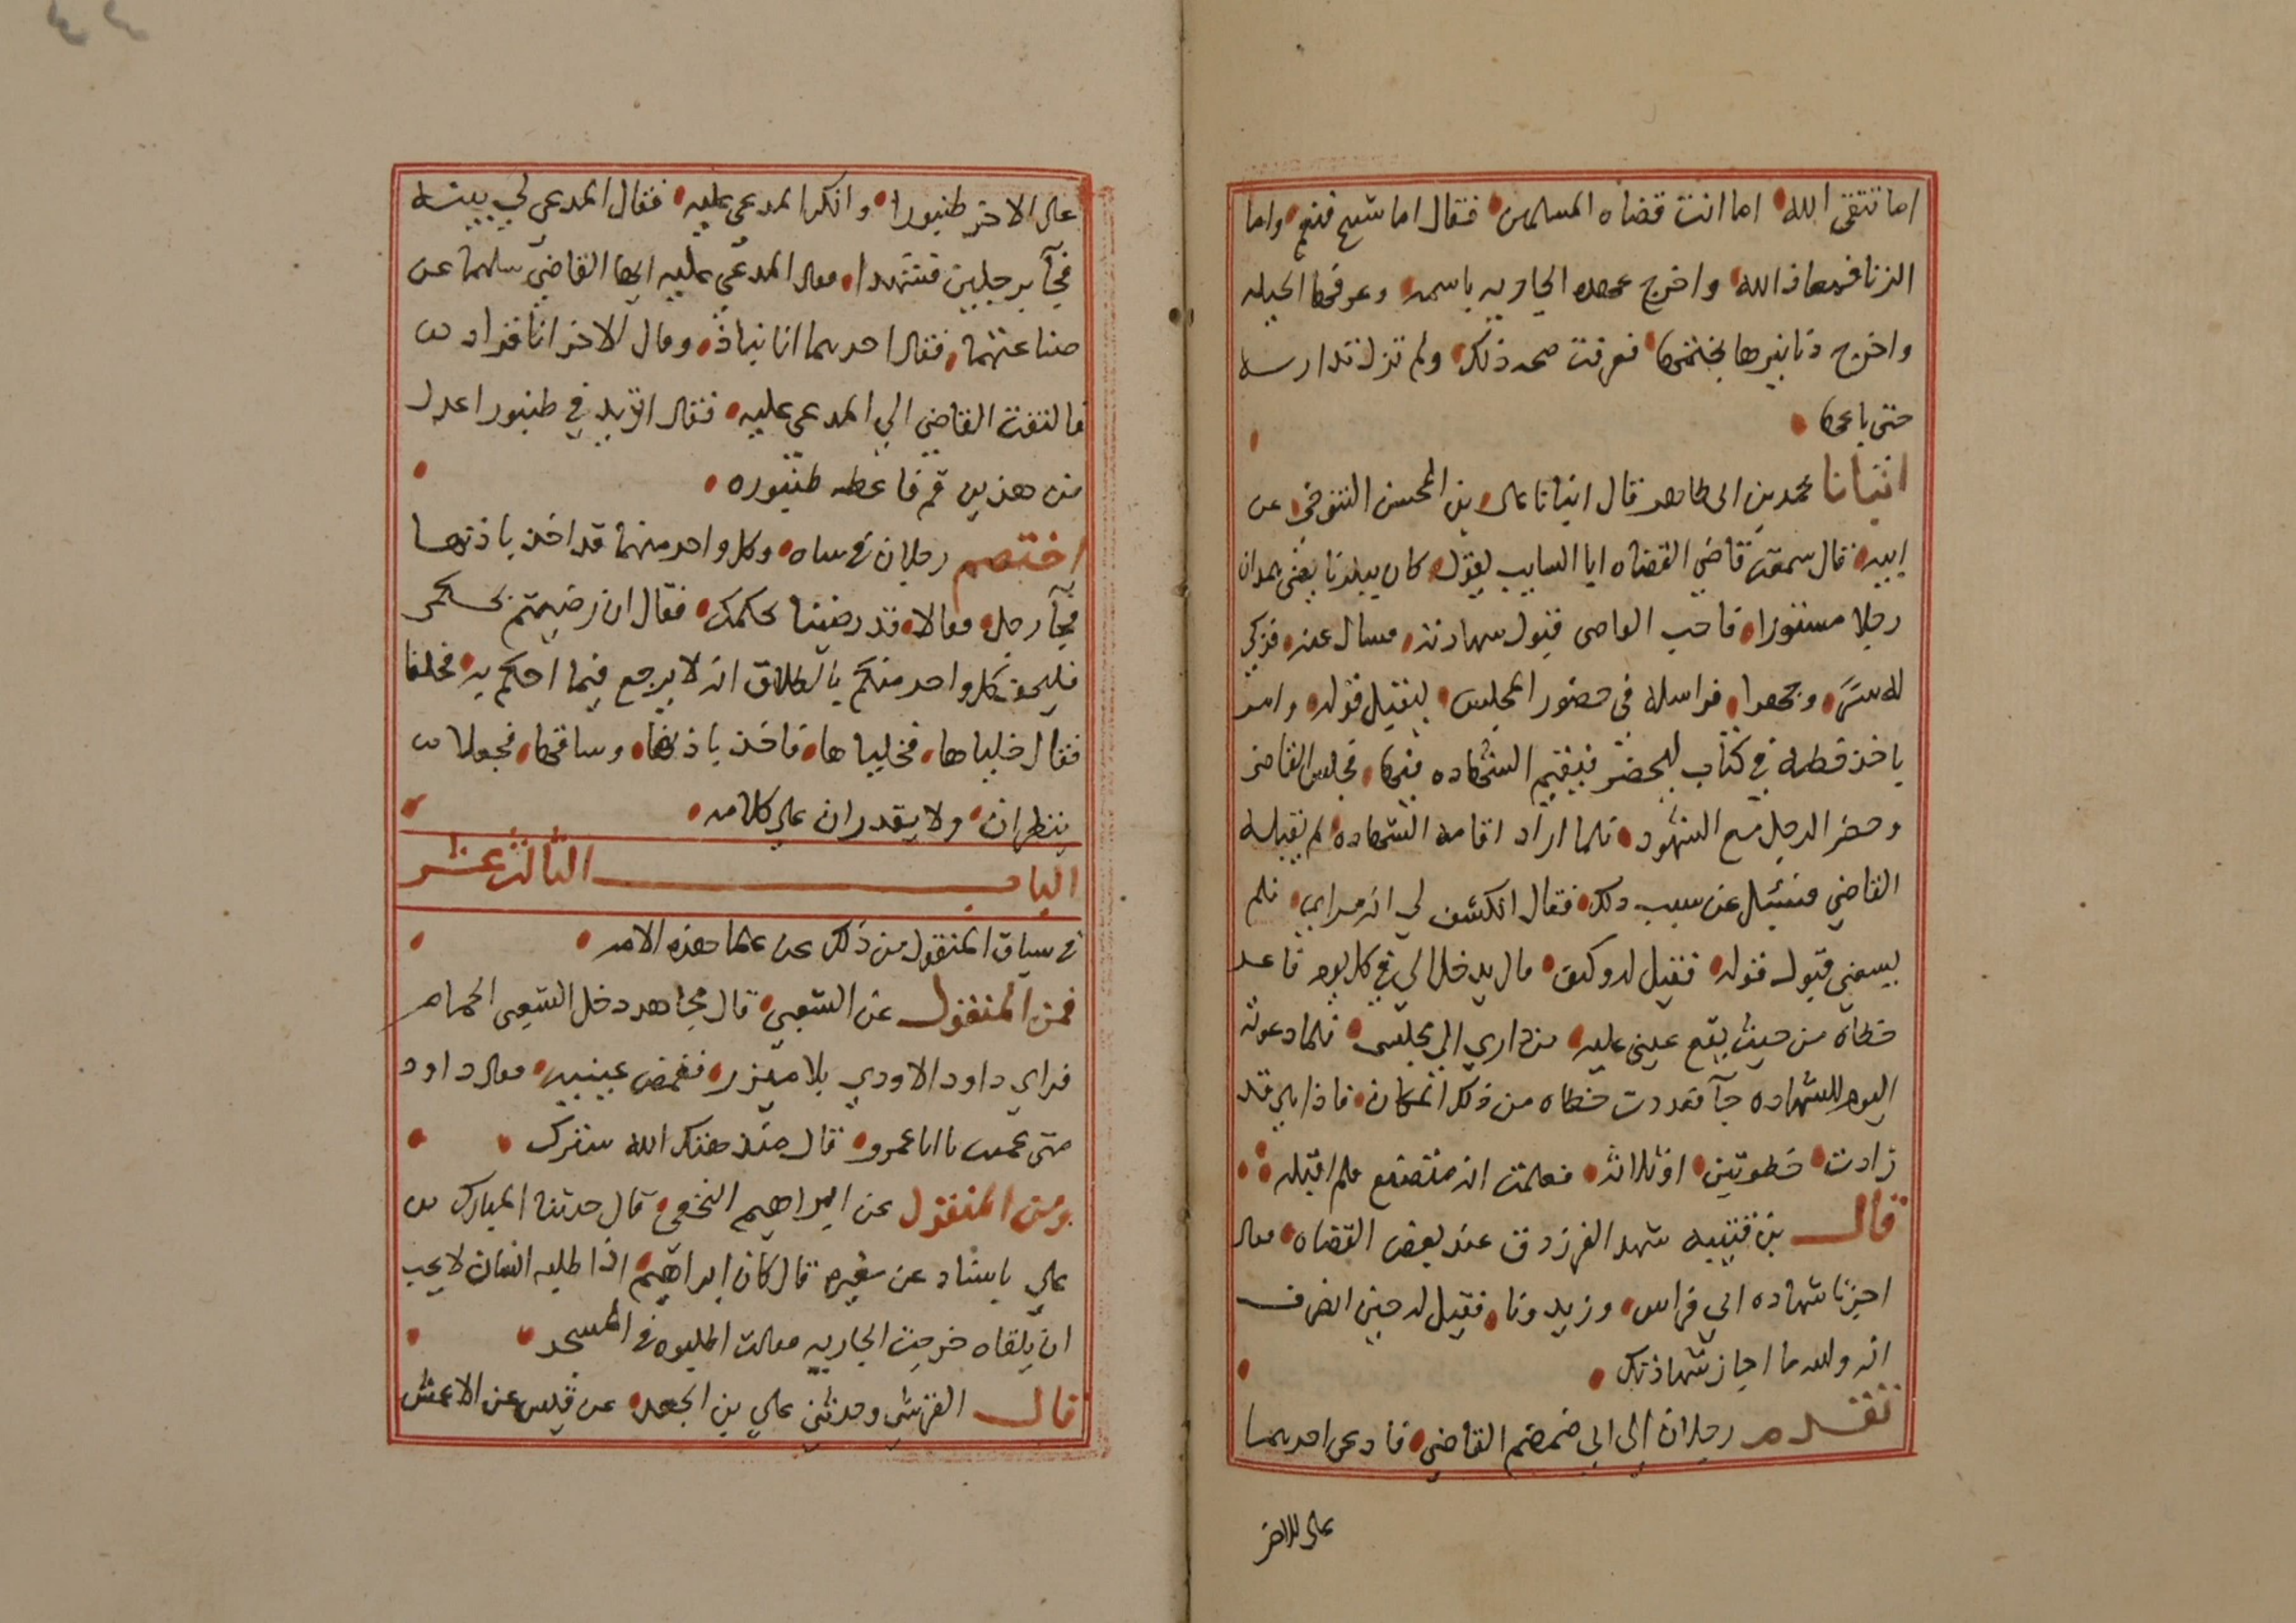 اما تتقى الله اما انت قضاه المسلمين فقال اما شيح فنعم واما
الزنا فمعاذ الله واخرج عهده الجاريه باسمه وعرفها الحيله
واخرج دنانيرها بختمها فعرفت صحه ذلك ولم تزل تدارسه
حتى باعها
انبانا محمد بن ابى طاهر قال انبانا على بن المحسن التنوخي عن
ابيه قال سمعت قاضي القضاه ابا السايب يقول كان ببلدنا يعنى همدان
رجلا مستورا فاحب القاضى قبول شهادته فسال عنه فزكي
له سرًّ وجهرا فراسله في حضور المجلس ليقبل قوله وامر
ياخذ خطه في كتاب ليحضر فيقيم الشهاده فيها فجلس القاضى
وحضر الرجل مع الشهود فلما اراد اقامه الشهاده لم يقبله
القاضي فسئيل عن سبب ذلك فقال انكشف لي انه مراىي فلم
يسعني قبول قوله فقيل له وكيف قال يدخل الي في كل يوم فاعد
خطاه من حيث يقع عيني عليه من داري الي مجلسى فلما دعوته
اليوم للشهاده جآ فعددت خطاه من ذلك المكان فاذا هي قد
زادت خطوتين او ثلاث فعلمت انه متصنع فلم اقبله
قال بن قتيبه شهد الفرزدق عند بعض القضاه فقال
اجزنا شهاده ابي فراس وزيدونا فقيل له حين انصرف
انه والله ما اجاز شهادتك
تقدم رجلان الي ابي ضمضم القاضي فادعى احدهما
على الاخر
على الاخر طنبورا وانكر المدعى عليه فقال المدعى لي بينه
فجآ برجلين فشهدا فقال المدعي عليه ايها القاضي سلهما عن
صناعتهما فقال احدهما انا نباذ وقال الاخر انا قواد
فالتفت القاضي الي المدعى عليه فقال اتريد في طنبور اعدل
من هذين قم فاعطه طنبوره
اختصم رجلان في شاه وكل واحد منهما قد اخذ باذنها
فجآ رجل فقالا قد رضينا بحكمك فقال ان رضيتم بحكمى
فليحلف كل واحد منكم بالطلاق انه لا يرجع فيما احكم به فحلفا
فقال خلياها فخلياها فاخذ باذنها وساقها فجعلا
ينظران ولا يقدران على كلامه
الباب الثالث عشر
في سياق المنقول من ذلك عن علما هذه الامه
فمن المنقول عن الشعبي قال مجاهد دخل الشعبى الحمام
فراي داود الاودي بلا ميزر فغمض عينيه فقال داود
متى عميت يا ابا عمرو قال منذ هتك الله سترك
ومن المنقول عن ابراهيم النخعي قال حدثنا المبارك بن
علي باسناد عن مغيره قال كان ابراهيم اذا طلبه انسان لا يحب
ان يلقاه خرجت الجاريه فقالت اطلبوه في المسجد
قال القرشي وحدثني علي بن الجعد عن قيس عن الاعمش